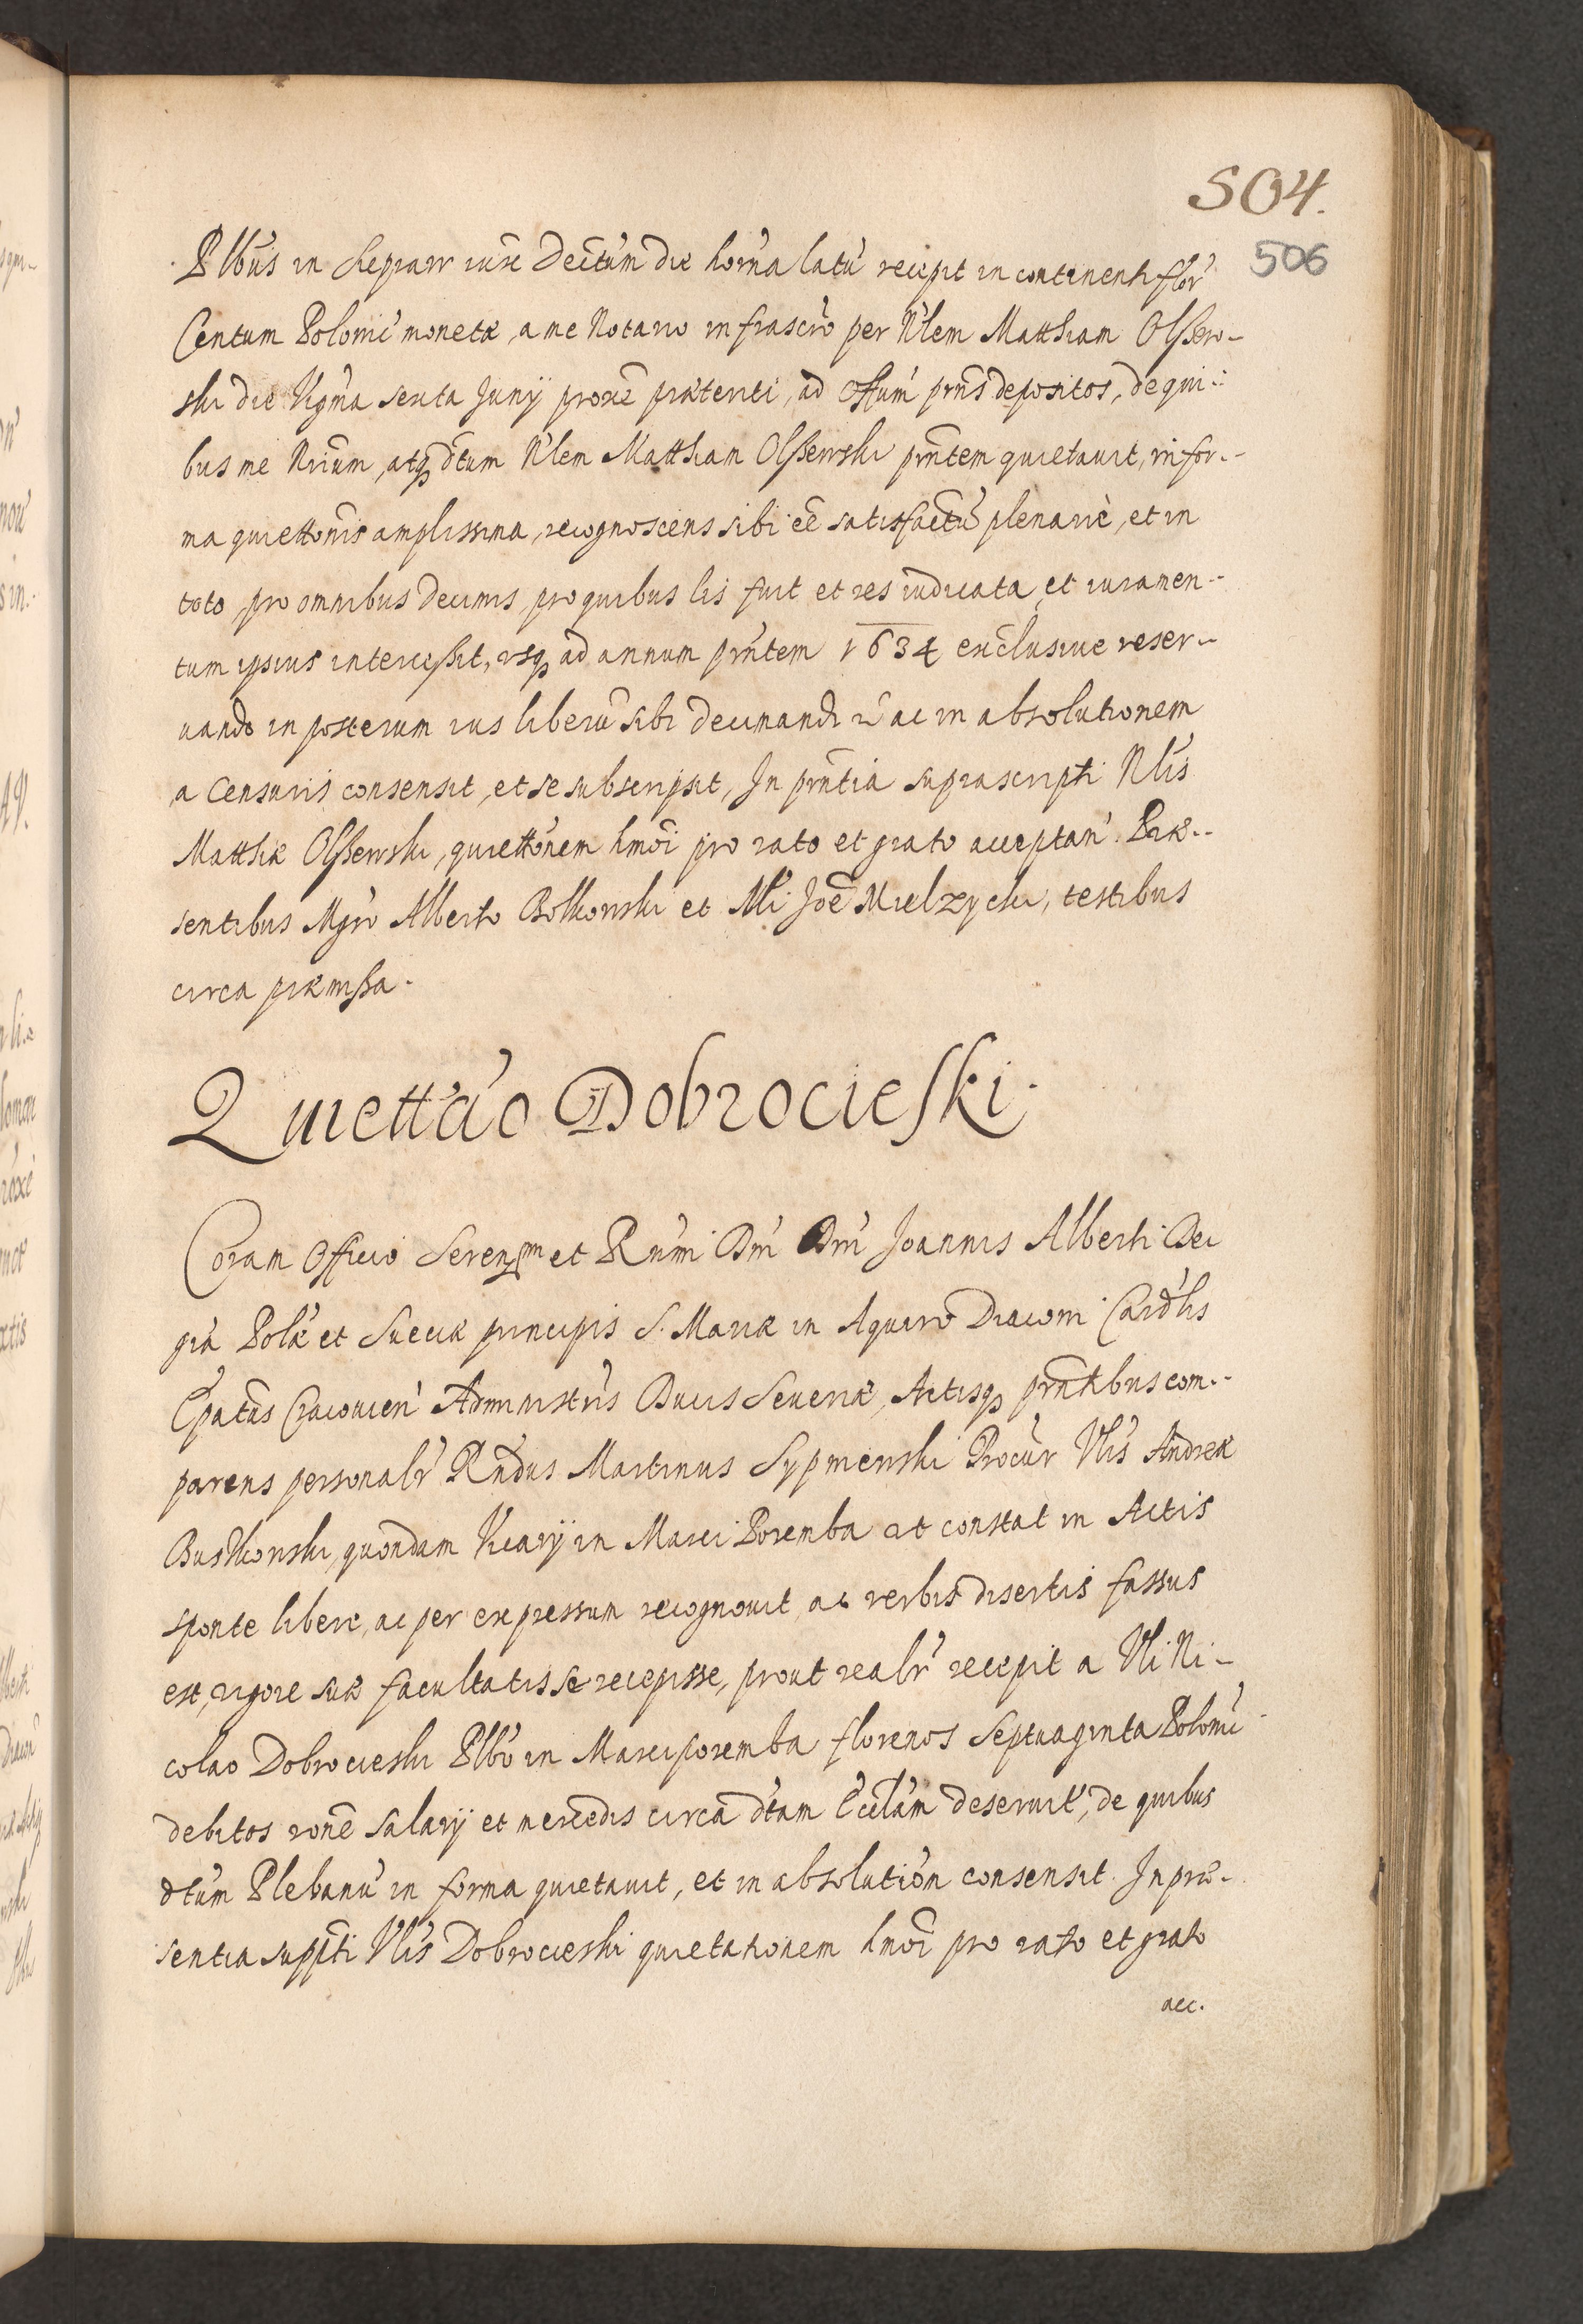 504.
506
Plbus in Siepraw iure Decitum die horna latu recepit in continenti flor
Centum Poloni monetæ, a me Notario infrascro per Nlem Matthiam Olssew-
ski die Vigma sexta Junij proxe præteriti, ad Offum prns depositos, de qui-
bus me Nrium, atq dtum Nlem Matthiam Olssewski prntem quietauit, in for-
ma quiettonis amplissima, recognoscens sibi ee satisfactu plenarie, et in
toto, pro omnibus Decimis, pro quibus lis fuit et res iudicata, et iuramen-
tum ipsius intercessit, vsq ad annum prntem 1634 exclusiue reser-
uando in posterum ius liberu sibi decimandi ac in absolutionem
a Censuris consensit, et se subscripsit, In prntia suprascripti Nlis
Matthiæ Olssewski, quiettonem hmoi pro rato et grato acceptan. Præ-
sentibus Mgro Alberto Bolkowski et Mli Joe Mielzycki, testibus
circa præmissa.
Quiettao Dobrocieski.
Coram Officio Serenssm et Rnmi Dni Dni Joannis Alberti Dei
gra Polæ et Sueciæ principis S. Mariæ in Aquiro Diaconi Cardlis
Epatus Cracouien Administris Ducis Seueriæ, Actisq prntibus com-
parens personalr Rndus Martinus Sypniewski Procur Vlis Andreæ
Buskowski, quondam Vicarij in Marci Poremba ut constat in Actis
sponte libere, ac per expressum recognouit ac verbis disertis fassus
est, vigore suæ facultatis se recepisse, prout realr recepit a Vli Ni-
colao Dobrocieski Plbo in Marciporemba florenos Septuaginta Poloni
debitos rone salarij et mercedis circa dtam Ecclam deseruit, de quibus
dtum Plebanu in forma quietauit, et in absolution consensit. In præ-
sentia suppti Vlis Dobrocieski quietationem hmoi pro rato et grato
acc.